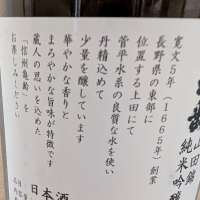 山田錦
純米吟醸
寛文5年(1665年)創業
長野県の東部に
位置する上田にて
菅平水系の良質な水を使い
丹精込めて
少量を醸しています
華やかな香りと
まろやかな旨味が特徴です
蔵人の思いを込めた
「信州亀齢」を
お楽しみください
日本酒